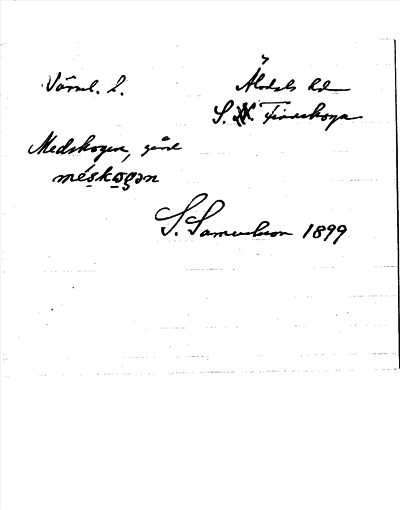 Värml. l. Älvdals hd
S. Finnskoga
Medskogen, gård
méskogən
S. Samuelsson 1899